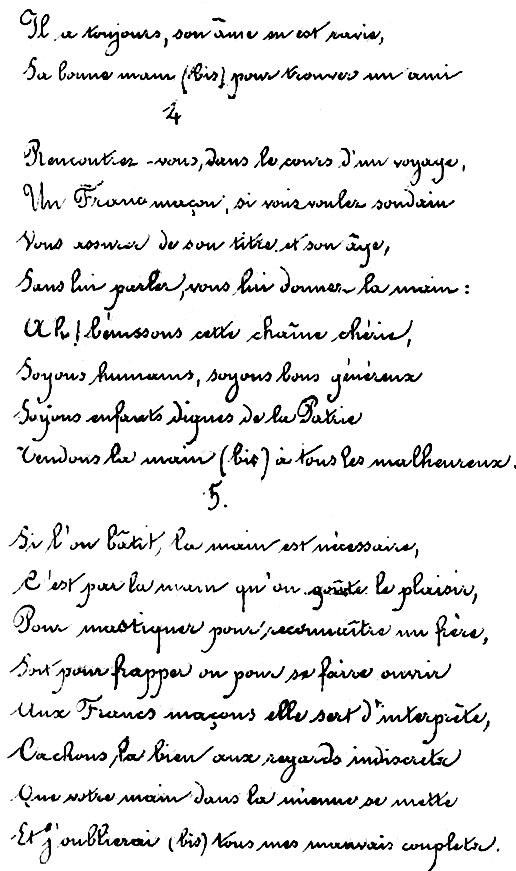 Il a toujours, son âme en est ravie,
Sa bonne main (bis) pour trouver un ami
4
Rencontrez-vous, dans le cours d'un voyage,
Un Franc maçon, si vous voulez soudain
Vous assurer de son titre et son âge,
Sans lui parler, vous lui donnez la main :
Ah! bénissons cette chaîne chérie,
Soyons humains, soyons bons généreux
Soyons enfants dignes de la Patrie
Tendons la main (bis) à tous les malheureux.
5.
Si l'on bâtit, la main est nécessaire,
C'est par la main qu'on goûte le plaisir,
Pour mastiquer pour reconnaître un frère,
Soit pour frapper ou pour se faire ouvrir
Aux Francs maçons elle sert d'interprête,
Cachons, la bien aux regards indiscrets
Que votre main dans la mienne se mette
Et j'oublierai (bis) tous mes mauvais couplets.